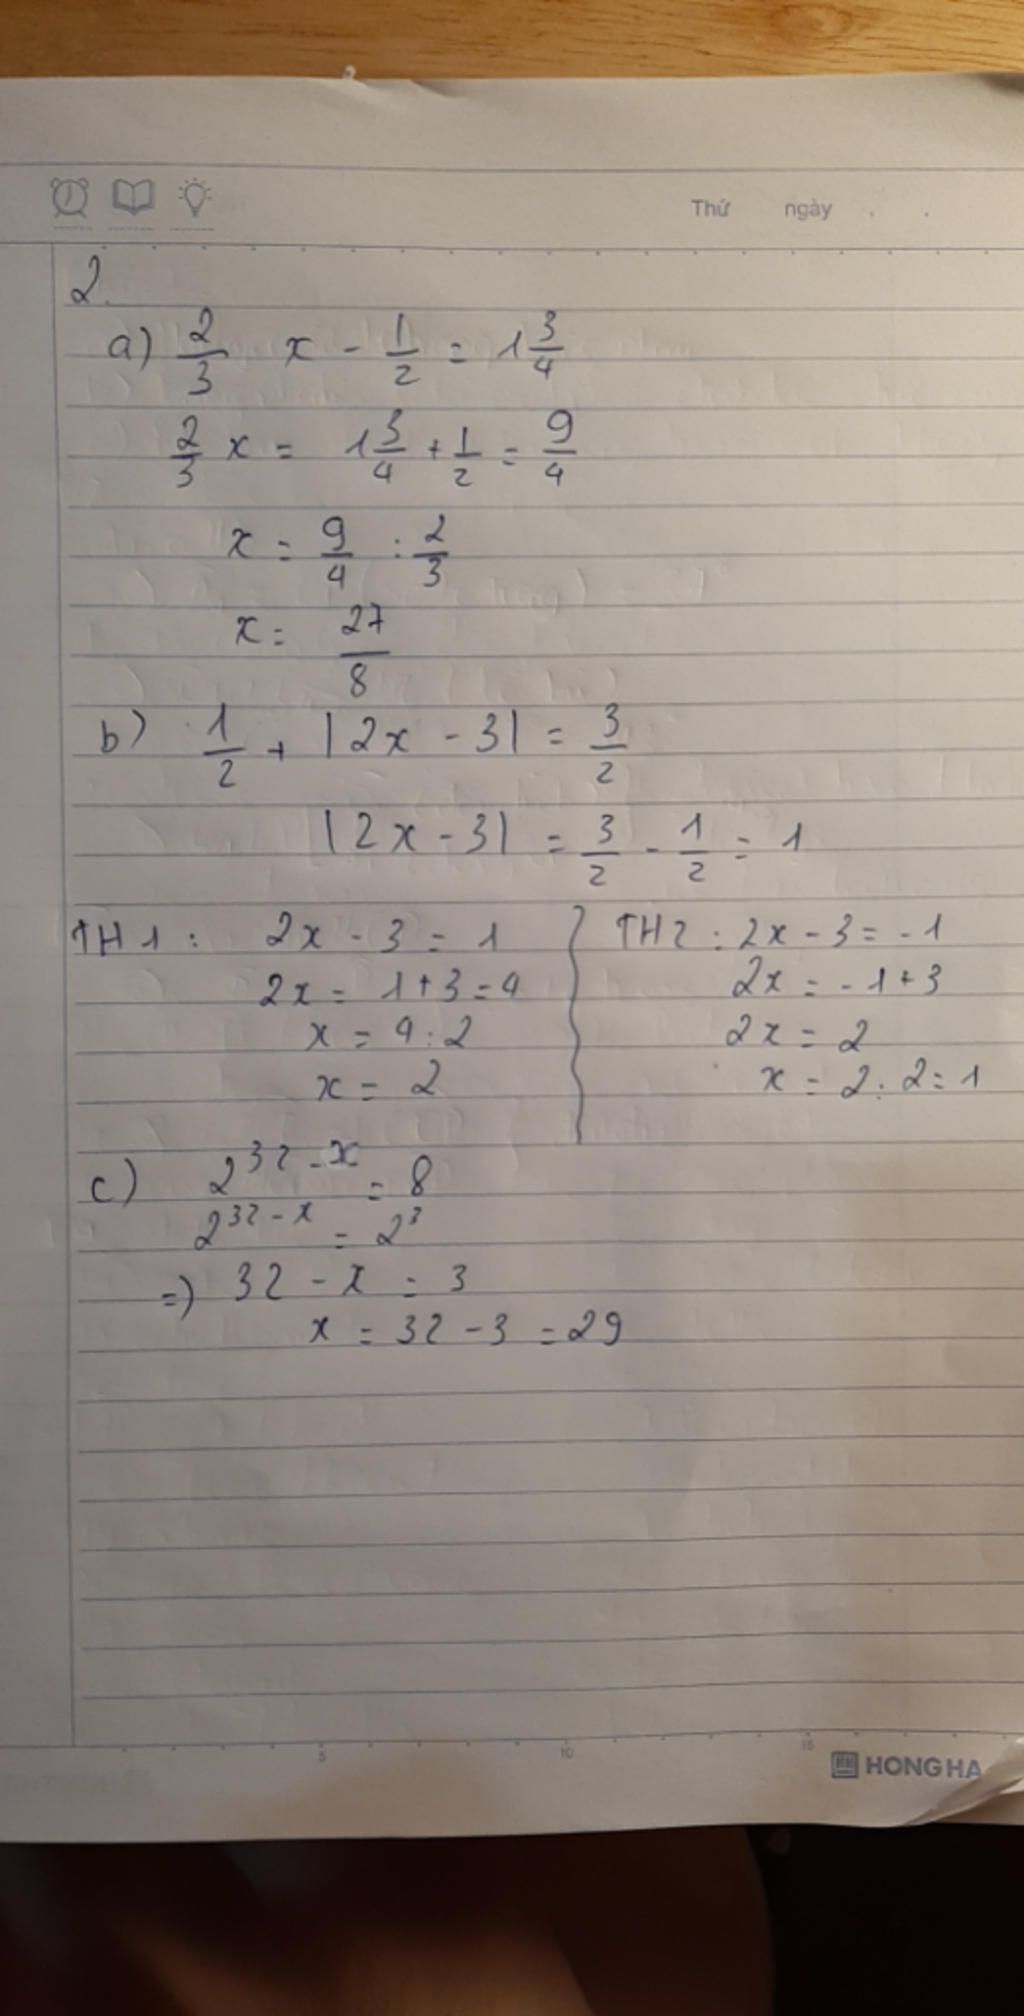 Thứ ngày . .
2.
a) 2/3 x - 1/2 = 1 3/4
2/3 x = 1 3/4 + 1/2 = 9/4
x = 9/4 : 2/3
x = 27/8
b) 1/2 + |2x - 3| = 3/2
|2x - 3| = 3/2 - 1/2 = 1
TH1 : 2x - 3 = 1
2x = 1 + 3 = 4
x = 4 : 2
x = 2
TH2 : 2x - 3 = - 1
2x = - 1 + 3
2x = 2
x = 2 : 2 = 1
c) 2^(32 - x) = 8
2^(32 - x) = 2^3
=) 32 - x = 3
x = 32 - 3 = 29
5 10 15
HH HONG HA